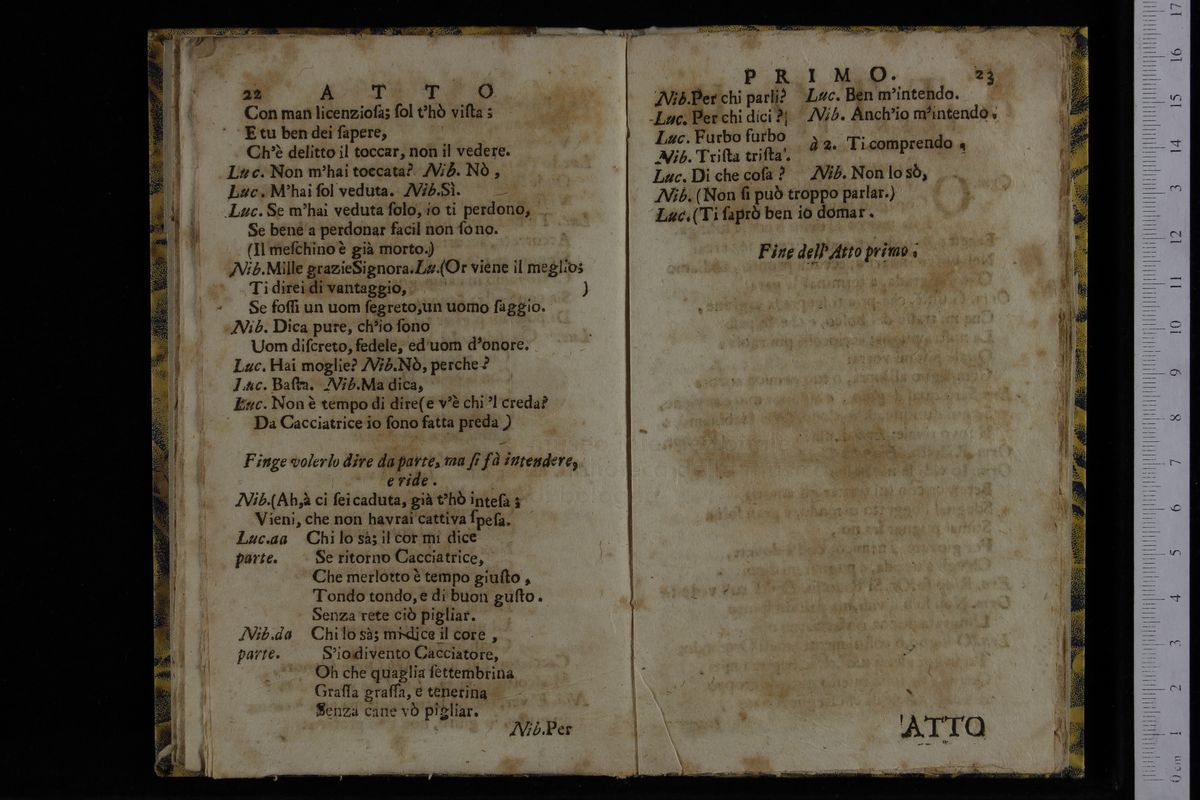 22 ATTO
Con man licenzioſa; ſol t'hò viſta;
E tu ben dei ſapere,
Ch'è delitto il toccar, non il vedere.
Luc. Non m'hai toccata? Nib. Nò,
Luc. M'hai ſol veduta. Nib.Sì.
Luc. Se m'hai veduta ſolo, io ti perdono,
Se bene a perdonar facil non ſono.
(Il meſchino è già morto.)
Nib.Mille grazieSignora.Lu.(Or viene il meglio;
Ti direi di vantaggio, )
Se foſſi un uom ſegreto,un uomo ſaggio.
Nib. Dica pure, ch'io ſono
Uom diſcreto, fedele, ed uom d'onore.
Luc. Hai moglie? Nib.Nò, perche?
Luc. Baſta. Nib.Ma dica,
Luc. Non è tempo di dire(e v'è chi 'l creda?
Da Cacciatrice io ſono fatta preda)
Finge volerlo dire da parte, ma ſi fà intendere,
e ride.
Nib.(Ah,à ci ſei caduta, già t'hò inteſa;
Vieni, che non havrai cattiva ſpeſa.
Luc.aa Chi lo sà; il cor mi dice
parte. Se ritorno Cacciatrice,
Che merlotto è tempo giuſto,
Tondo tondo, e di buon guſto.
Senza rete ciò pigliar.
Nib.da Chi lo sà; mi dice il core,
parte. S'io divento Cacciatore,
Oh che quaglia ſettembrina
Graſſa graſſa, e tenerina
Senza cane vò pigliar.
Nib.Per
PRIMO. 23
Nib.Per chi parli? Luc. Ben m'intendo.
Luc. Per chi dici? Nib. Anch'io m'intendo.
Luc. Furbo furbo
à 2. Ti comprendo,
Nib. Triſta triſta.
Luc. Di che coſa? Nib. Non lo sò,
Nib. (Non ſi può troppo parlar.)
Luc.(Ti ſaprò ben io domar.
Fine dell'Atto primo.
ATTO